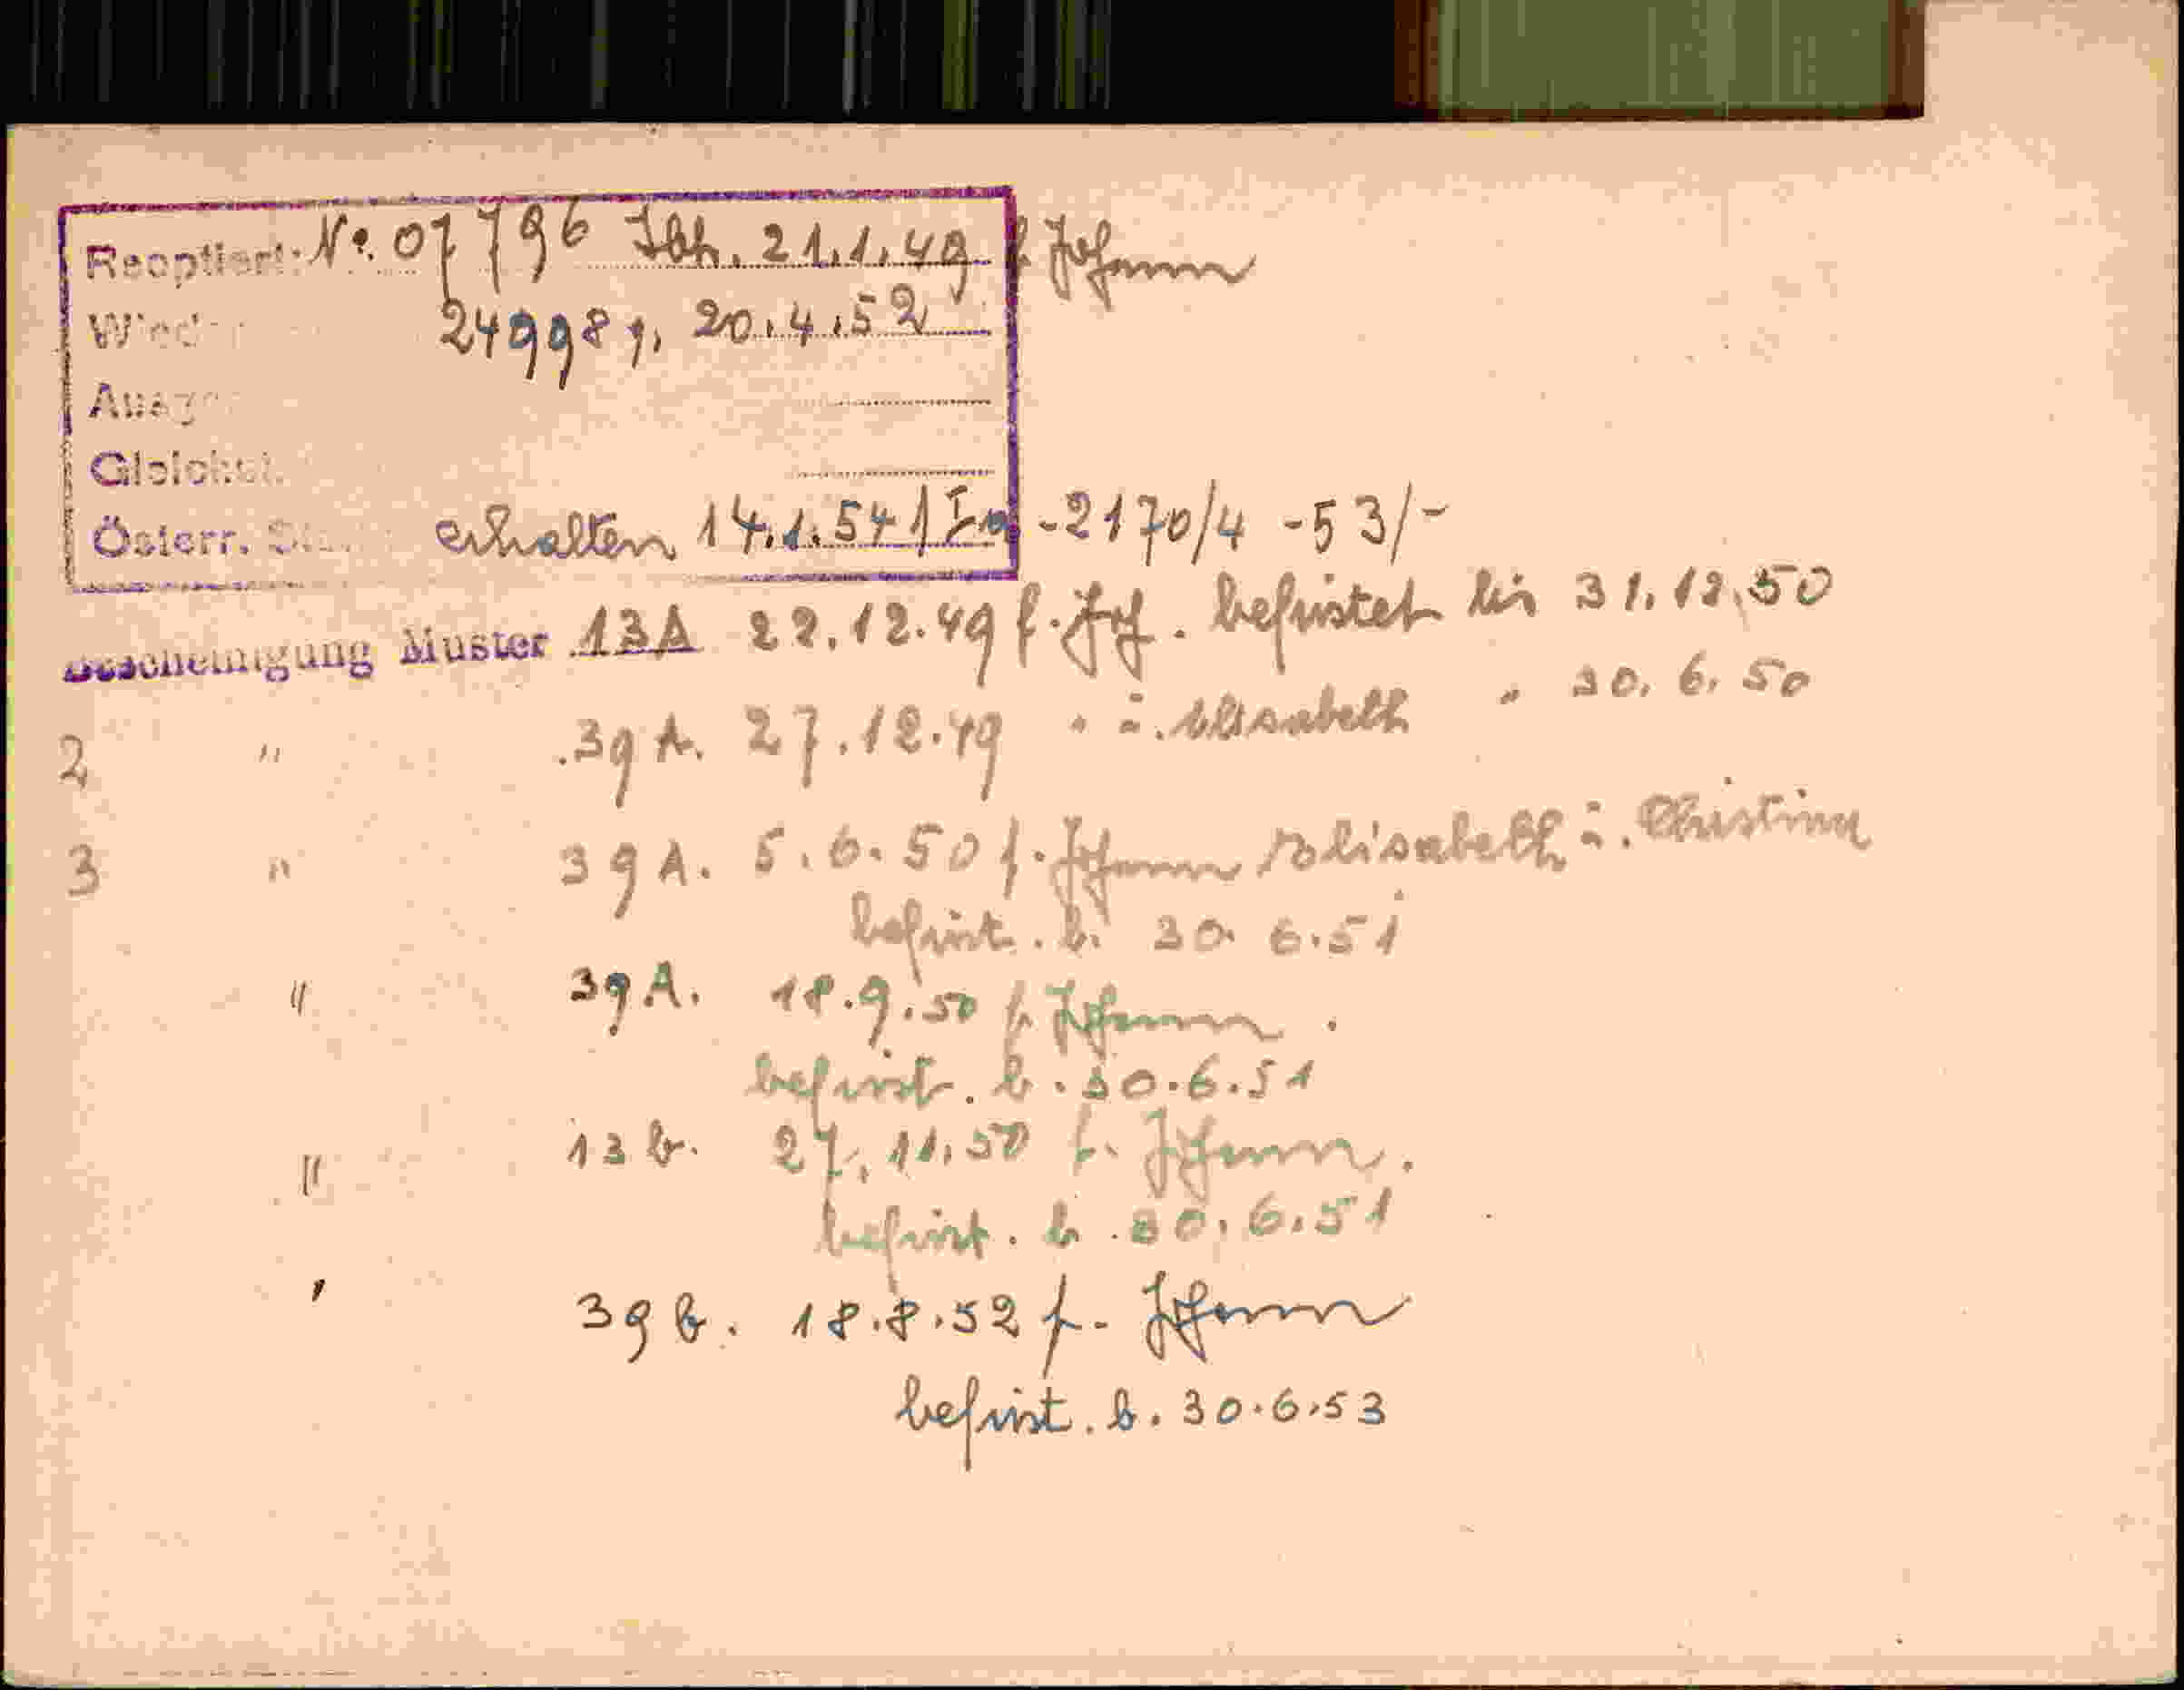 Reoptiert: No. 07796 Ibk. 21.1.49 f. Johann
24998 J. 20.4.52
Gleichst.
Österr. erhalten 14.1.54 / Ia -2170/4 -53/-
Bescheinigung Muster 13A 22.12.49 f. Joh. befristet bis 31.12.50
2 " 39 A. 27.12.49 " u. Elisabeth " 30.6.50
3 " 39 A. 5.6.50 f. Johann Elisabeth u. Christina
befrist. b. 30.6.51
" 39 A. 18.9.50 f. Johann.
befrist. b. 30.6.51
" 13 b. 27.11.50 f. Johann.
befrist. b. 30.6.51
" 39 b. 18.8.52 f. Johann
befrist. b. 30.6.53